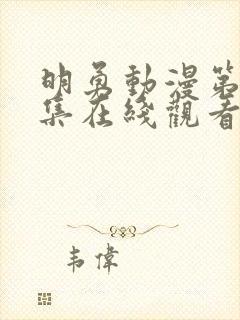 明勇動漫第
集在綫觀看
韦偉